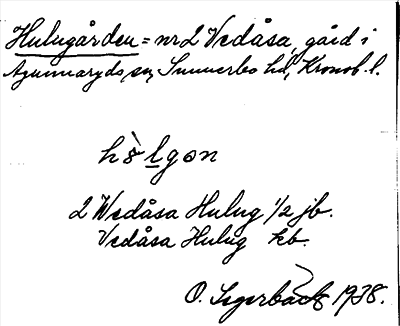 Hulugården = nr 2 Vedåsa, gård i
Agunnaryds sn, Sunnerbo hd, Kronob. l.
hòlgon
2 Wedåsa Hulug 1/2 jb.
Vedåsa Hulug kb.
O. Segerbäck 1938.